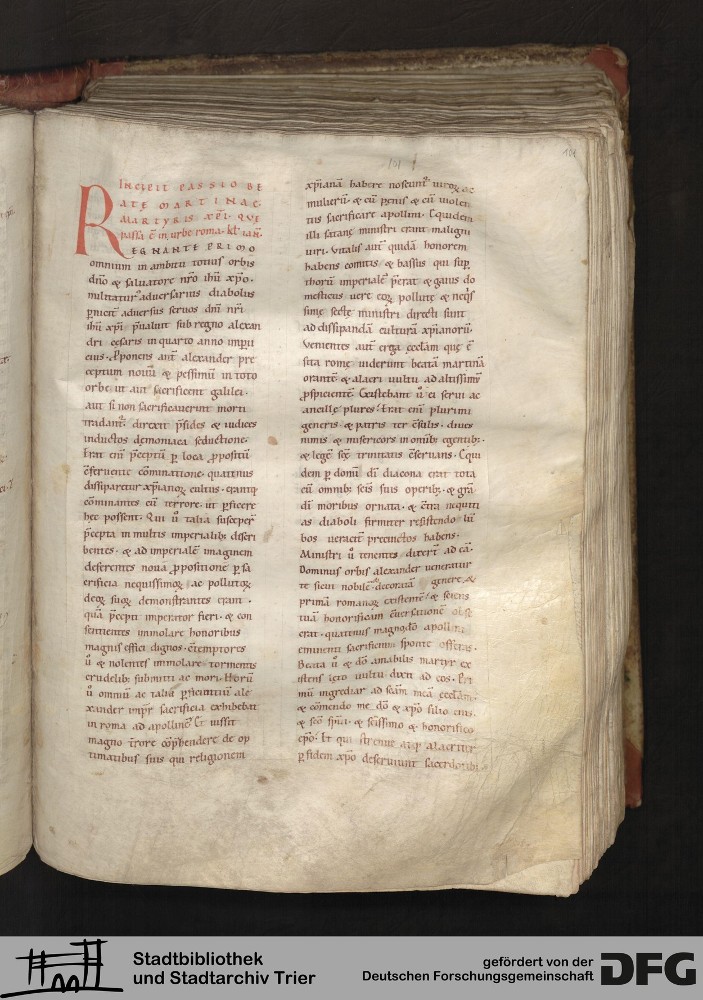 101
101
INCIPIT PASSIO BE
ATE MARTINAE
MARTYRIS XPI. QVE
passa ē in urbe roma. kl ian̄.
REGNANTE PRIMO
omnium in ambitu totius orbis
dn̄o & saluatore nr̄o ihū xp̄o.
militatur aduersarius diabolus
aduersus seruos dnī nr̄i
ihū xp̄i p̄ualuit sub regno alexan
dri cesaris in quarto anno imp̄ii
eius. Exponens aut̄ alexander pre
ceptum nouū & pessimū in toto
orbe ut aut sacrificent galilei.
aut si non sacrificauerint morti
tradant̄. direxit p̄sides & iudices
inductos demoniaca seductione.
Erat eni p̄ceptū p loca p̄positū
cōminatione. quatinus
dissiparetur xp̄ianoꝝ cultus. erantq;
cōminantes cū terrore. ut p̄ficere
hec possent. Qui u̅ talia susceper̄
p̄cepta in multis imperialib; diseri
bentes. & ad imperialē imaginem
deferentes noua p̄positione p sa
crificia nequissimoꝝ ac pollutoꝝ
deoꝝ suoꝝ demonstrantes erant.
quā p̄cepti imperator fieri. & con
sentientes immolare honoribus
magnis effici dignos. cōtemptores
u̅ & nolentes immolare tormentis
crudelib; submitti ac mori. Horū
u̅ omniū ac talia p̄ficientiū ale
xander imp̄r sacrificia exhibebat
in roma ad apollinē. Et iussit
magno t̄rore cōp̄hendere de op
timatibus suis qui religionem
xp̄ianā habere noscunt̄ uiroꝝ ac
mulierū. & cū penis & cū uiolen
tiis sacrificare apollini. Equidem
illi satane ministri erant maligni
uiri. Vitalis aut̄ quidā honorem
habens comitis & bassus qui sup
thorū imperialē p̄erat & gaius do
mesticus uere eoꝝ pollutę & neq̄s
simę sectę ministri directi sunt
ad dissipandā culturā xp̄ianorū.
Venientes aut̄ erga ęcclam quę ē
sita romę uiderunt beatā martinā
orantē & alacri uultu ad altissimū
p̄spicientē. Gestabant u̅ ei serui ac
ancille plures. Erat eni plurimi
generis & patris ter cōsulis. diues
nimis & misericors in omnib; egentib;.
& legē scę trinitatis cōseruans. Equi
dem p donū dī diacona erat tota
cū omnib; scis suis operib;. & grā
dī moribus ornata. & cōtra nequiti
as diaboli firmiter resistendo lū
bos ueraciter precinctos habens.
Ministri u̅ tenentes dixerū ad eā.
Dominus orbis alexander ueneratur
te sicut nobilē. decoratā genere. &
primā romanoꝝ existente & sciens
tuā honorificam cōuersationē
erat. quatinus magno dō apollini
eminenti sacrificium sponte offeras.
Beata u̅ & dō amabilis martyr ex
istens lęto uultu dixit ad eos. Pri
mū ingrediar ad scām meā ęcclam.
& cōmendo me dō & xp̄o filio eius.
& scō spū. & scissimo & honorifico
ep̄o. Et qui strenue atq; alacriter
p fidem xp̄o deseruiunt sacerdotibꝫ
Stadtbibliothek
und Stadtarchiv Trier
gefördert von der
Deutschen Forschungsgemeinschaft
DFG